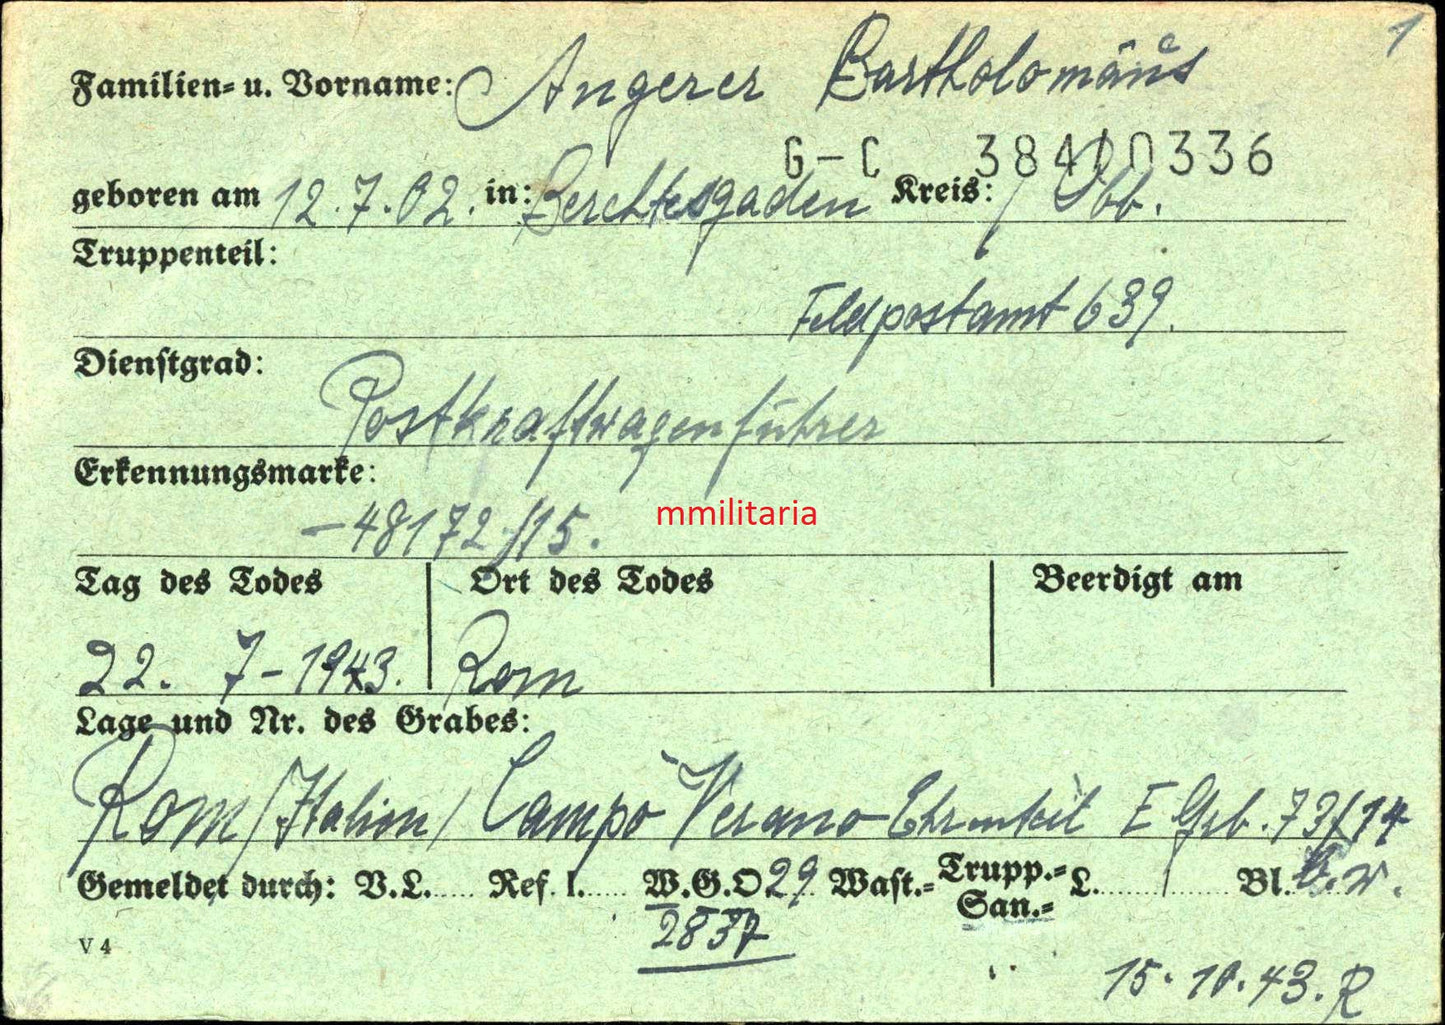 1
Familien= u. Vorname: Angerer Bartholomäus
G-C 38410336
geboren am 12.7.02. in: Berchtesgaden Kreis: / Obb.
Truppenteil:
Feldpostamt 639.
Dienstgrad:
Postkraftwagenführer
Erkennungsmarke:
-48172/15.
mmilitaria
Tag des Todes Ort des Todes Beerdigt am
22. 7-1943. Rom
Lage und Nr. des Grabes:
Rom/Italien/ Campo Verano Ehrenteil E Grb. 73/14
Gemeldet durch: V.L..... Ref. I..... W.G.O 29 Wast.= Trupp.=
San.= L......... Bl.
2837
V 4
15.10.43. R